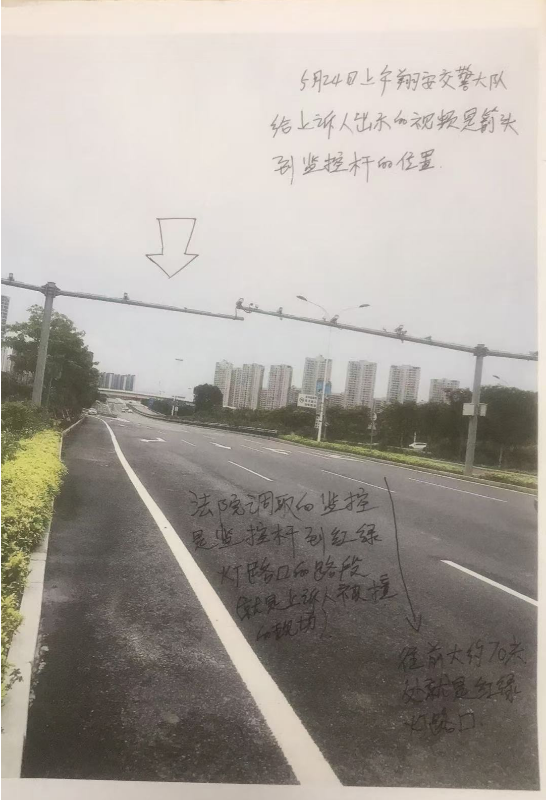 5月24日上午翔安交警大队
给上诉人出示的视频是箭头
到监控杆的位置.
法院调取的监控
是监控杆到红绿
灯路口的路段
(就是上诉人被撞
的现场)
往前大约70米
处就是红绿
灯路口